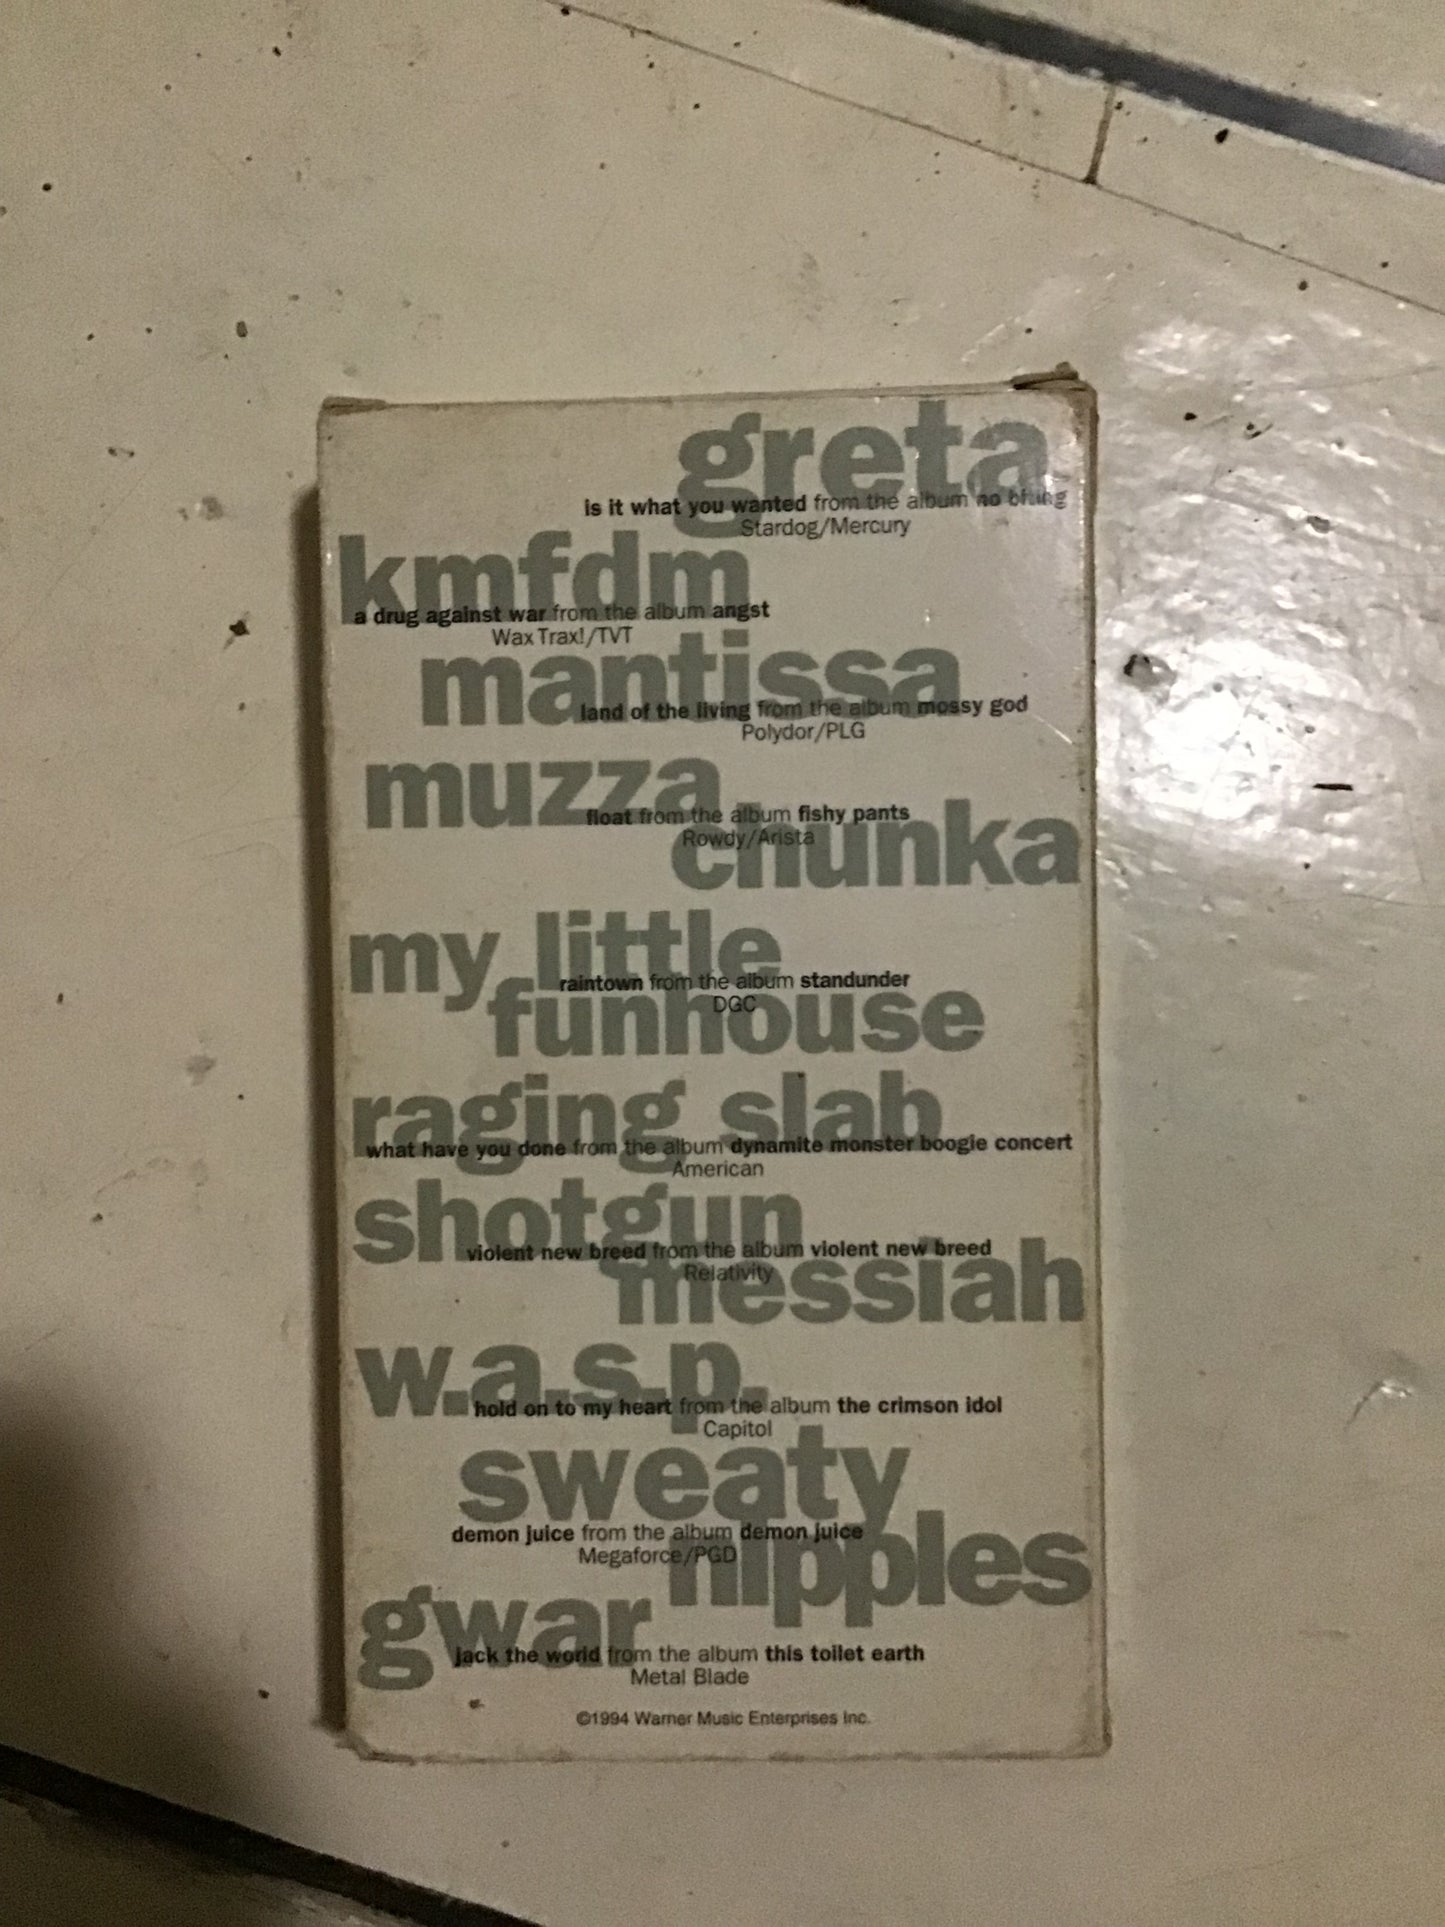 greta
is it what you wanted from the album no biting
Stardog/Mercury
kmfdm
a drug against war from the album angst
Wax Trax!/TVT
mantissa
land of the living from the album mossy god
Polydor/PLG
muzza
float from the album fishy pants
Rowdy/Arista
chunka
my little
raintown from the album standunder
DGC
funhouse
raging slab
what have you done from the album dynamite monster boogie concert
American
shotgun
violent new breed from the album violent new breed
Relativity
messiah
w.a.s.p.
hold on to my heart from the album the crimson idol
Capitol
sweaty
demon juice from the album demon juice
Megaforce/PGD
nipples
gwar
jack the world from the album this toilet earth
Metal Blade
©1994 Warner Music Enterprises Inc.